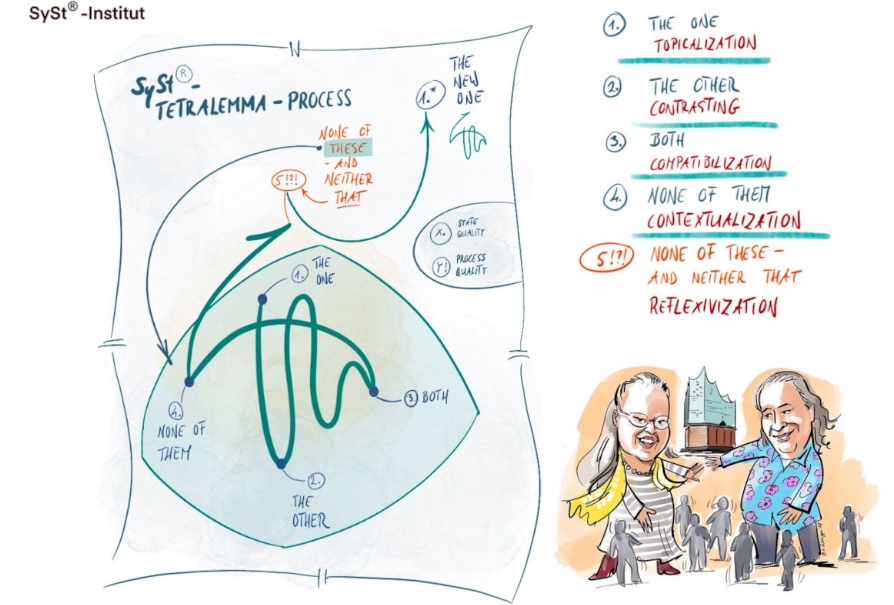 SySt®-Institut
N
SySt®-
TETRALEMMA-PROCESS
1.* THE
NEW
ONE
NONE OF
THESE
- AND
NEITHER
THAT
5!?!
X. STATE
QUALITY
Y! PROCESS
QUALITY
1. THE
ONE
3 BOTH
4.
NONE OF
THEM
2.
THE
OTHER
1. THE ONE
TOPICALIZATION
2. THE OTHER
CONTRASTING
3. BOTH
COMPATIBILIZATION
4. NONE OF THEM
CONTEXTUALIZATION
5!?! NONE OF THESE -
AND NEITHER THAT
REFLEXIVIZATION